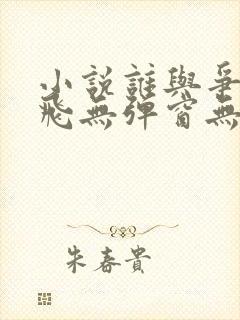 小說誰與爭
飛無彈窗無
朱春貴